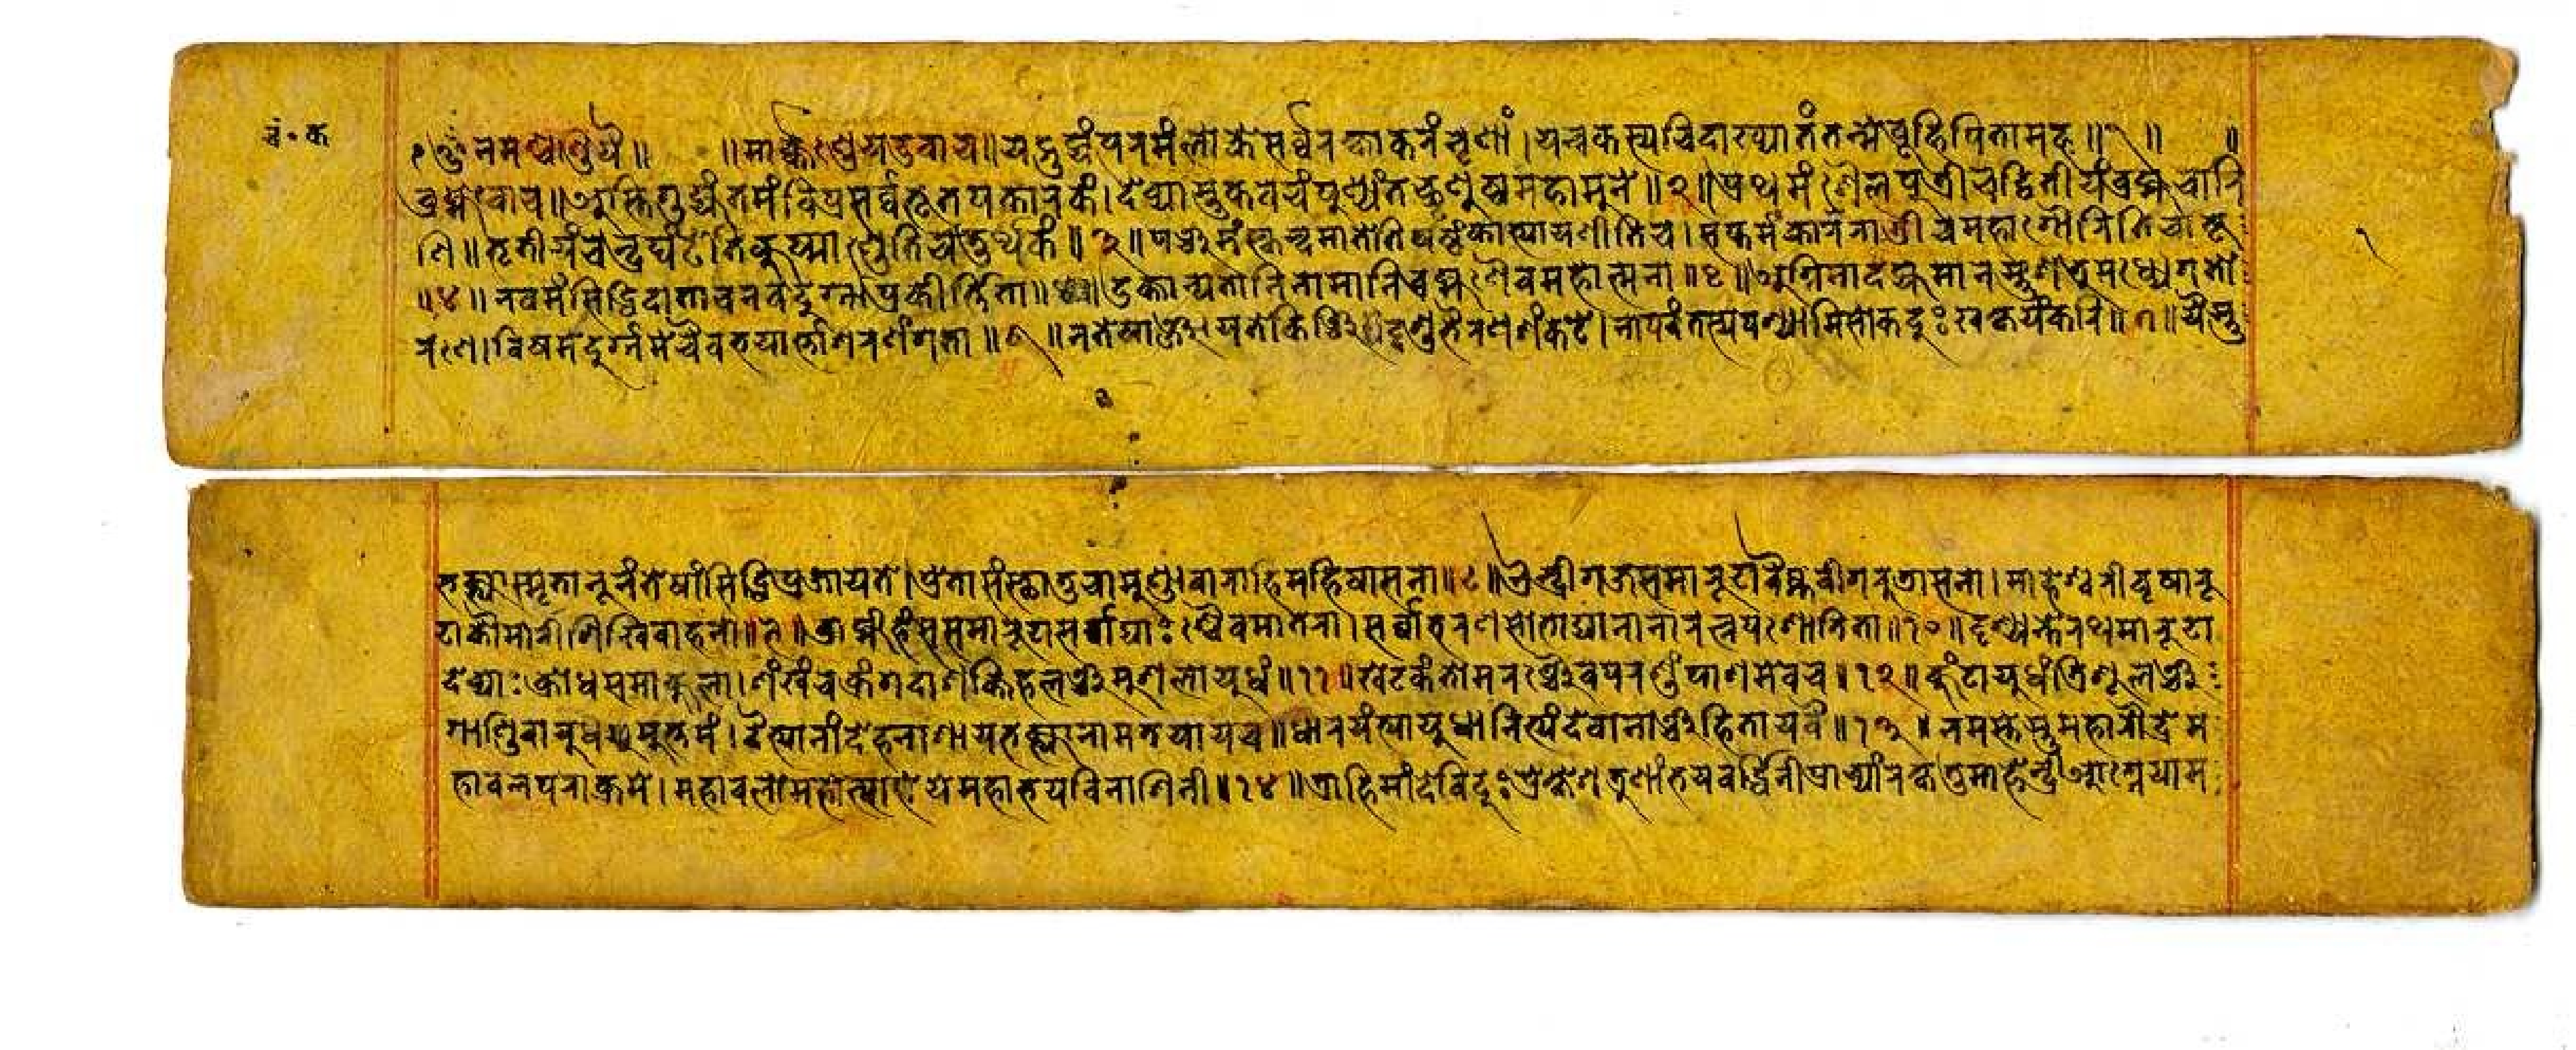 चं॰ क
ॐ नमश्चण्डिकायै॥ ॥मार्क्कण्डेय उवाच॥ यद्गुह्यं परमं लोके सर्व्वरक्षाकरं नृणां। यन्नकस्यचिदाख्यातं तन्मे ब्रूहि पितामह॥१॥ ॥
ब्रह्मोवाच॥ अस्ति गुह्यतमं विप्र सर्व्वभूतपकारकं। देव्यास्तु कवचं पुण्यं तच्छृणुष्व महामुने॥२॥ प्रथमं शैलपुत्री च द्वितीयं ब्रह्मचारि
णि॥ तृतीयं चन्द्रघंटेति कुष्माण्डेति चतुर्थकं॥३॥ पञ्चमं स्कन्दमातेति षष्ठं कात्यायणीति च। सप्तमं कालरात्री च महागौरिति चाष्ट
॥४॥ नवमं सिद्धिदाता च नवदुर्गा प्रकीर्त्तिता॥ उक्तान्यतानि नामानि ब्रह्मणैव महात्मना॥५॥ अग्निना दह्यमानस्तु शत्रुमध्येगतो
रणे। विषमे दुर्ग्गमे चैव भयार्त्ता शरणं गता॥६॥ न तेषां जायते किञ्चिदशुभं रणशंकटे। नापदं तस्य पश्यामि सोकदुःखक्षयंकरि॥७॥ यैस्तु
१
भक्त्या स्मृता नूनं तेषां सिद्धि प्रजायते। प्रेतासंस्था तु चामुण्डा वाराहि महिषासना॥८॥ ऐन्द्री गजसमारूढा वैष्णवी गरुडासना। माहेश्वरी वृषारू
ढा कौमारी शिखिवाहना॥९॥ ब्राह्मी हंससमारूढा सर्वाद्याः श्चैव मातरा। सर्व्वाभरणसोभाद्या नानारत्नपशोभिता॥१०॥ दृश्यन्ते रथमारूढा
देव्याः क्रोधसमाकुला। शंखं चक्रं गदा शक्ति हलञ्च मुशलायुधं॥११॥ खेटकं तोमरञ्चैव परशुं पाशमेव च॥१२॥ कुंटायुधं त्रिशूलञ्च
दैत्यानां देहनाशाय भक्त्यानामभयाय च॥ धारयंत्यायुधानित्यं देवानाञ्च हिताय वै॥१३॥ नमस्तेस्तु महारौद्रे म
हाबलपराक्रमे। महाबले महोत्साहे महाभयविनाशिनी॥१४॥ त्राहि मां देवि दुःप्रेक्षे शत्रुणां भयवर्द्धिनी प्राच्यां रक्षतु माहेन्द्री आग्नेयाम